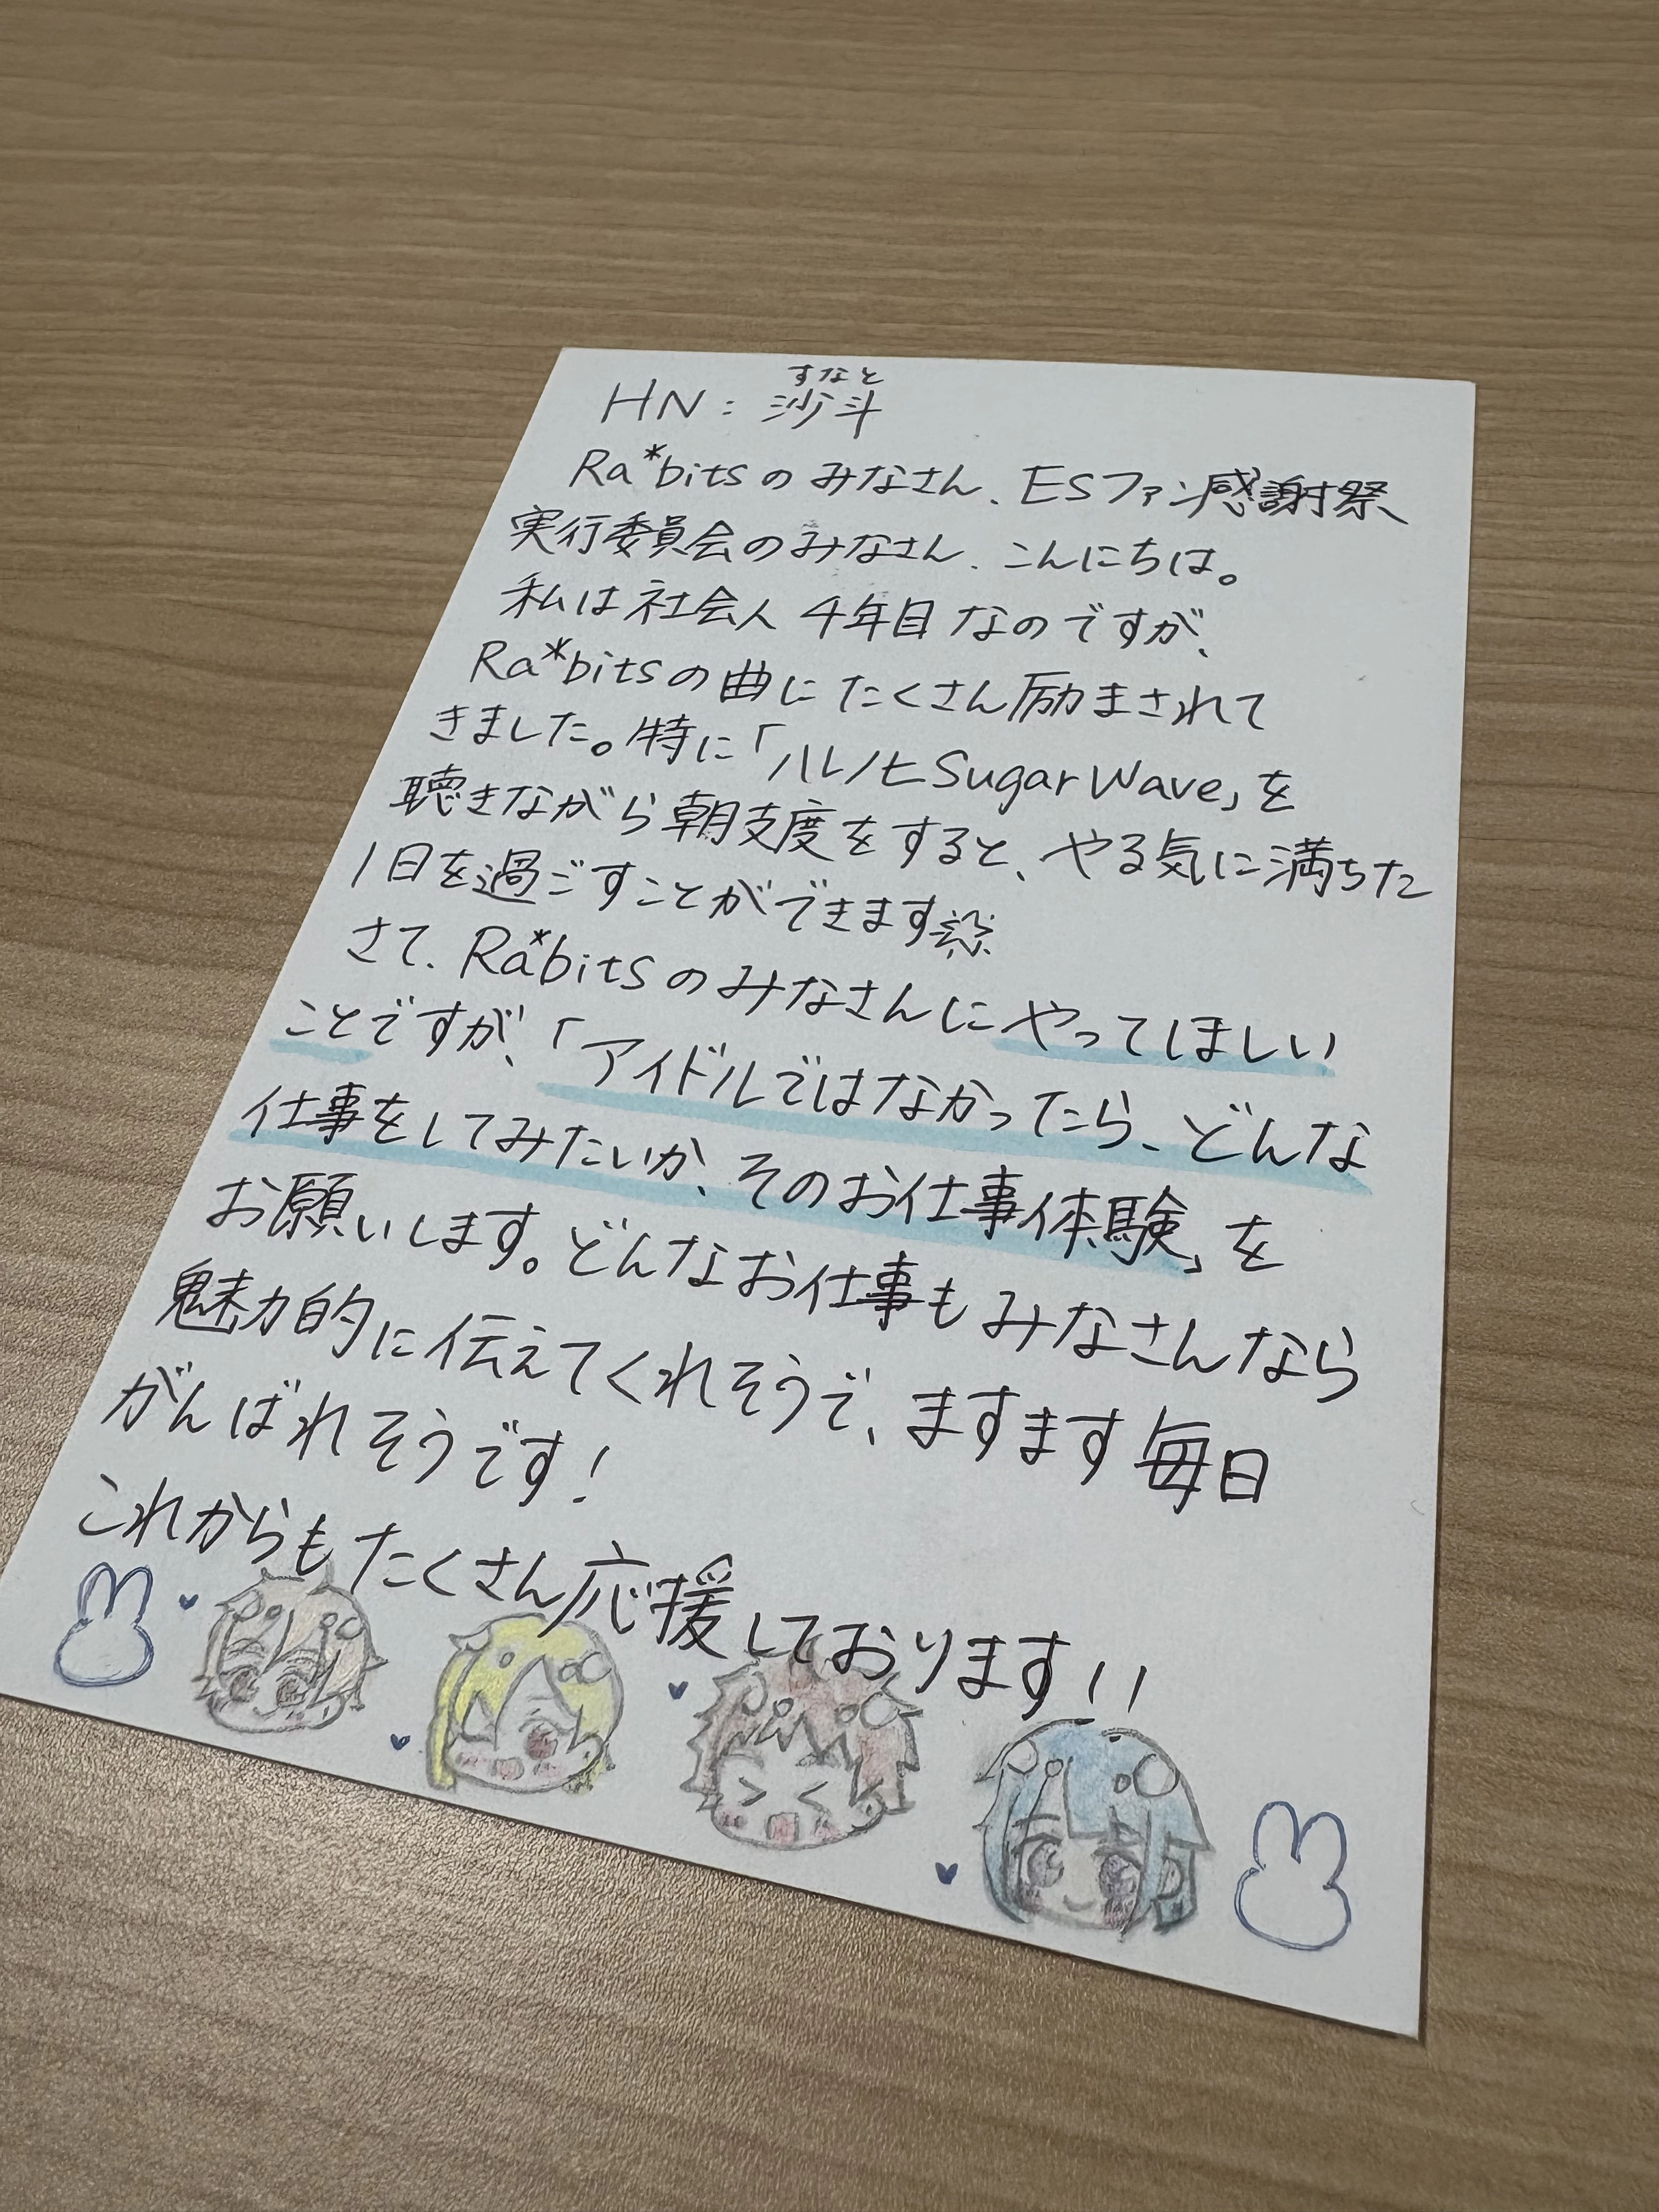 すなと
HN:沙斗
Ra*bitsのみなさん、ESファン感謝祭
実行委員会のみなさん、こんにちは。
私は社会人4年目なのですが、
Ra*bitsの曲にたくさん励まされて
きました。特に「ハレノヒSugar Wave」を
聴きながら朝支度をすると、やる気に満ちた
1日を過ごすことができます
さて、Ra*bitsのみなさんにやってほしい
ことですが、「アイドルではなかったら、どんな
仕事をしてみたいか、そのお仕事体験」を
お願いします。どんなお仕事もみなさんなら
魅力的に伝えてくれそうで、ますます毎日
がんばれそうです!
これからもたくさん応援しております!!